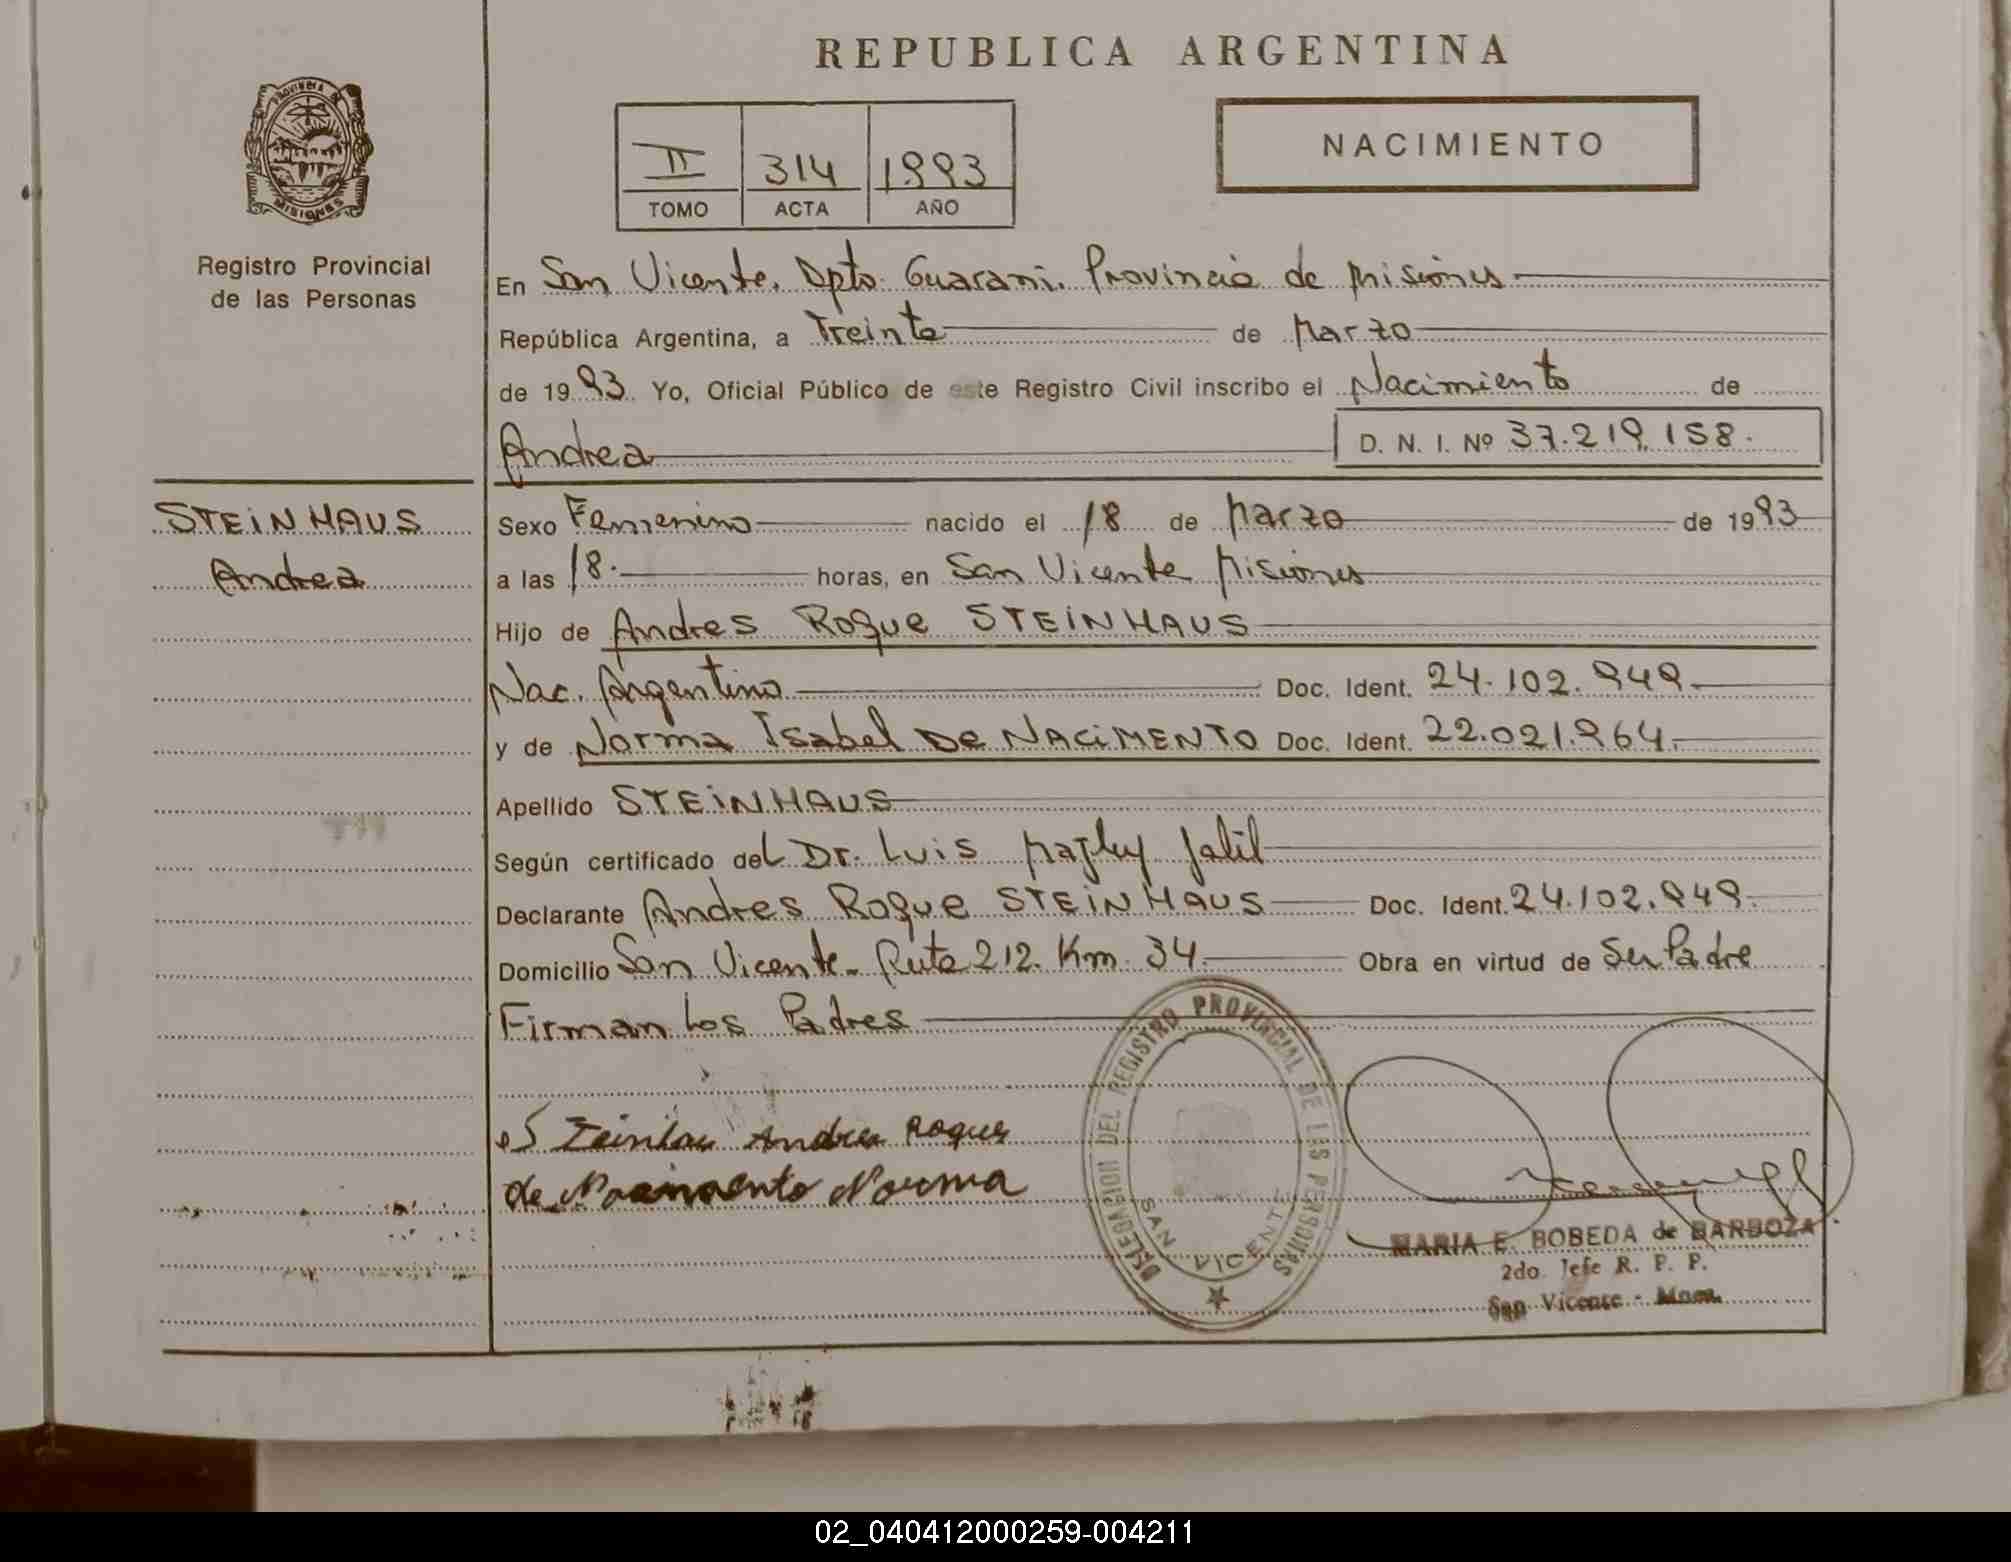 REPUBLICA ARGENTINA
PROVINCIA DE
MISIONES
Registro Provincial
de las Personas
II 314 1993
TOMO ACTA AÑO
NACIMIENTO
En San Vicente. Dpto. Guarani. Provincia de Misiones
República Argentina, a Treinta de Marzo
de 1993. Yo, Oficial Público de este Registro Civil inscribo el Nacimiento de
Andrea D. N. I. Nº 37.219.158.
STEINHAUS
Andrea
Sexo Femenino nacido el 18 de Marzo de 1993
a las 18. horas, en San Vicente Misiones
Hijo de Andres Roque STEINHAUS
Nac. Argentino Doc. Ident. 24.102.949
y de Norma Isabel DE NACIMENTO Doc. Ident. 22.021.964.
Apellido STEINHAUS
Según certificado del Dr. Luis Jalil
Declarante Andres Roque STEINHAUS Doc. Ident. 24.102.949.
Domicilio San Vicente. Ruta 212. Km. 34. Obra en virtud de Ser Padre
Firman Los Padres
Andres Roque
de Nacimento Norma
DELEGACION DEL REGISTRO PROVINCIAL DE LAS PERSONAS
SAN VICENTE
MARIA E. BOBEDA de BARBOZA
2do. Jefe R. P. P.
San Vicente - Mnes.
02_040412000259-004211